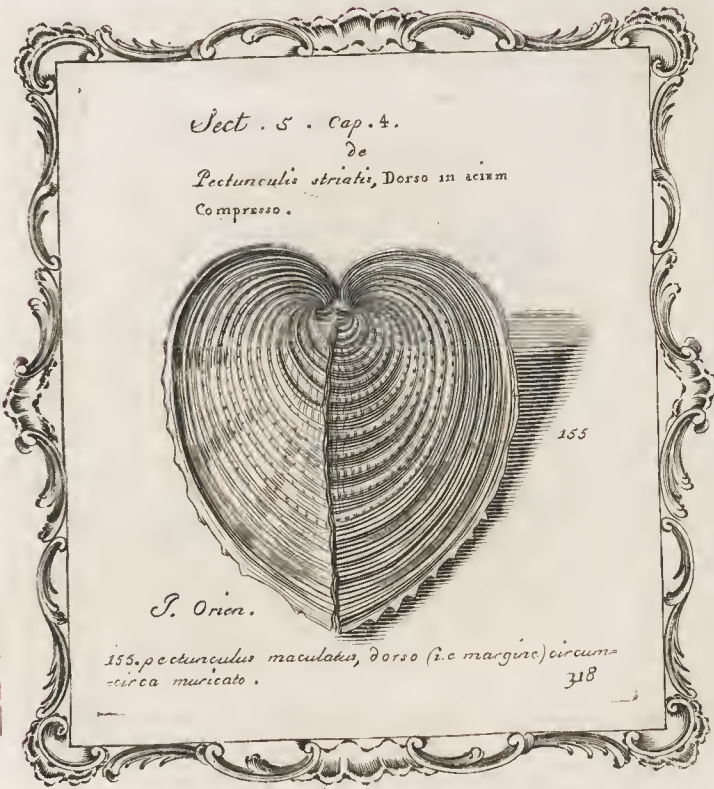 Sect. 5. Cap. 4.
de
Pectunculis striatis, Dorso in aciem
Compresso.
155
I. Orien.
155. pectunculus maculatus, dorso (i.e margine) circum=
=circa muricato.
318